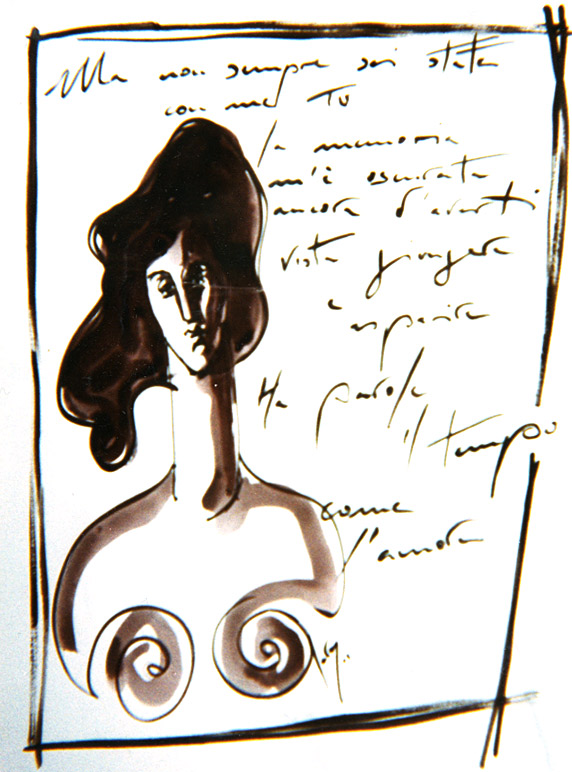 Ma non sempre sei stata
con me Tu
la memoria
m'è oscurata
ancora d'averti
vista giungere
e
sparire
Ha parole
il tempo
come
l'amore